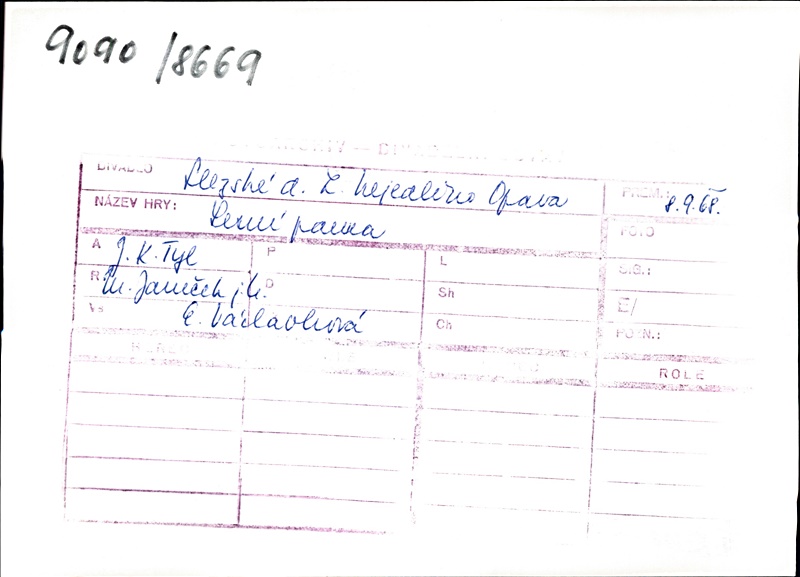 9090 /8669
DIVADLO Slezské d. Z. Nejedlého Opava PREM.: 8.9.68.
NÁZEV HRY: Lesní panna FOTO
A J. K. Tyl P L SIG.:
R M. Janeček j. h. D Sh E/
Vs E. Václavková Ch POZN.:
ROLE